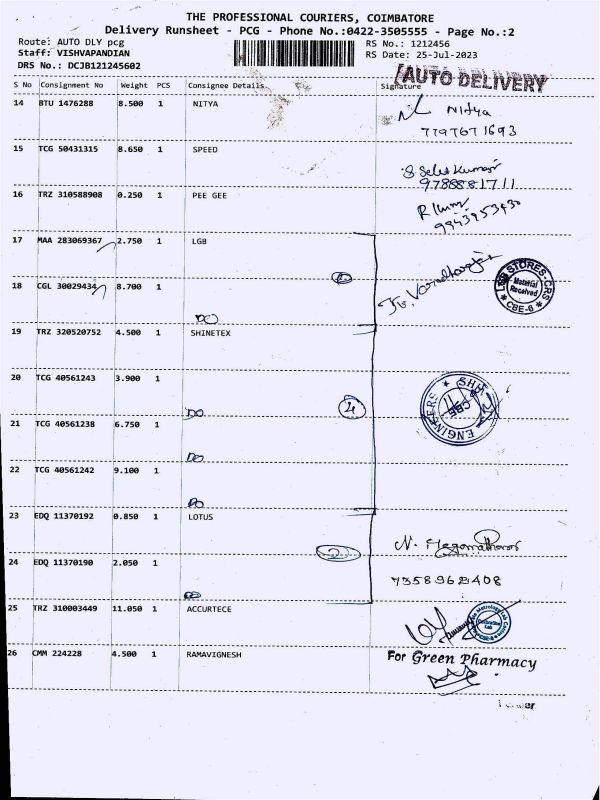 THE PROFESSIONAL COURIERS, COIMBATORE
Delivery Runsheet - PCG - Phone No.:0422-3505555 - Page No.:2
Route: AUTO DLY pcg RS No.: 1212456
Staff: VISHVAPANDIAN RS Date: 25-Jul-2023
DRS No.: DCJB121245602
AUTO DELIVERY
S No Consignment No Weight PCS Consignee Details Signature
14 BTU 1476288 8.500 1 NITYA
Nitya
15 TCG 50431315 8.650 1 SPEED
S Selva Kumar
9788881711
16 TRZ 310588908 0.250 1 PEE GEE
R Kumar
9943953430
17 MAA 283069367 2.750 1 LGB
2
18 CGL 30029434 8.700 1
LGB STORES-CRS
Material
Received
CBE-6
DO
19 TRZ 320520752 4.500 1 SHINETEX
20 TCG 40561243 3.900 1
DO
4
ENGINEERS
CBE
21 TCG 40561238 6.750 1
DO
22 TCG 40561242 9.100 1
DO
23 EDQ 11370192 0.850 1 LOTUS
2
24 EDQ 11370190 2.050 1
7358962408
DO
25 TRZ 310003449 11.050 1 ACCURTECE
26 CMM 224228 4.500 1 RAMAVIGNESH
For Green Pharmacy